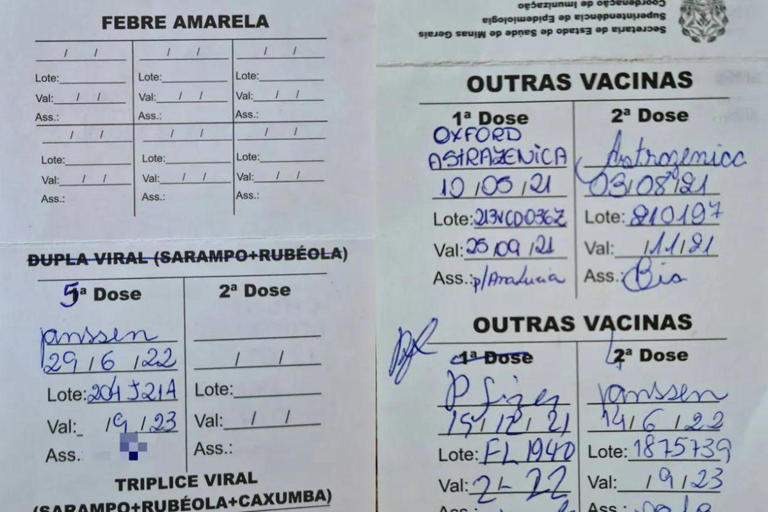 FEBRE AMARELA
/ / / / / /
Lote: Lote: Lote:
Val: / / Val: / / Val: / /
Ass.: Ass.: Ass.:
/ / / / / /
Lote: Lote: Lote:
Val: / / Val: / / Val: / /
Ass.: Ass.: Ass.:
DUPLA VIRAL (SARAMPO+RUBÉOLA)
5ª Dose
Janssen
29/6/22
Lote: 204J21A
Val: /9/23
Ass.
2ª Dose
/ /
Lote:
Val: / /
Ass.:
TRIPLICE VIRAL
(SARAMPO+RUBÉOLA+CAXUMBA)
Secretaria de Estado de Saúde de Minas Gerais
Superintendência de Epidemiologia
Coordenação de Imunização
OUTRAS VACINAS
1ª Dose
OXFORD
ASTRAZENICA
10/05/21
Lote: 213VCD036Z
Val: 25/09/21
Ass.: p/Ana Lucia
2ª Dose
Astrazenica
03/08/21
Lote: 210197
Val: /11/21
Ass.: Bia
OUTRAS VACINAS
1ª Dose
Pfizer
15/12/21
Lote: FL1940
Val: 2-22
Ass.:
2ª Dose
Janssen
14/6/22
Lote: 1875739
Val: /9/23
Ass.: